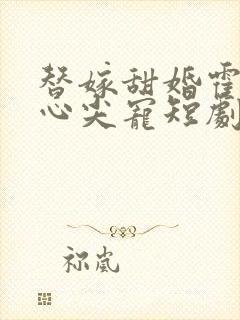 替嫁甜婚霍
心尖寵短劇
祢嵐